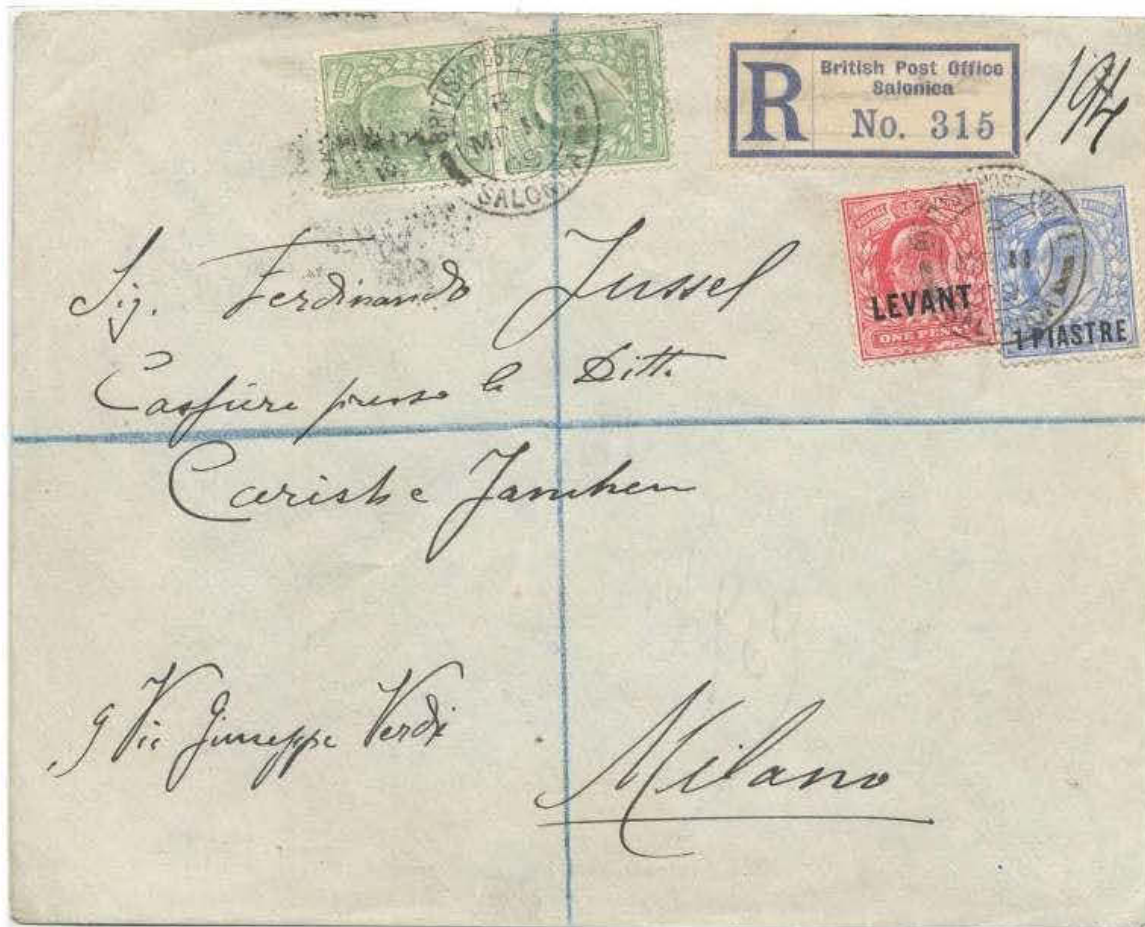 HALF PENNY
BRITISH POST OFFICE
MR 11
SALONICA
R
British Post Office
Salonica
No. 315
194
LEVANT
ONE PENNY
1 PIASTRE
Sig. Ferdinando Jussel
Cassiere presso la Ditta
Carish e
9 Via Giuseppe Verdi
Milano